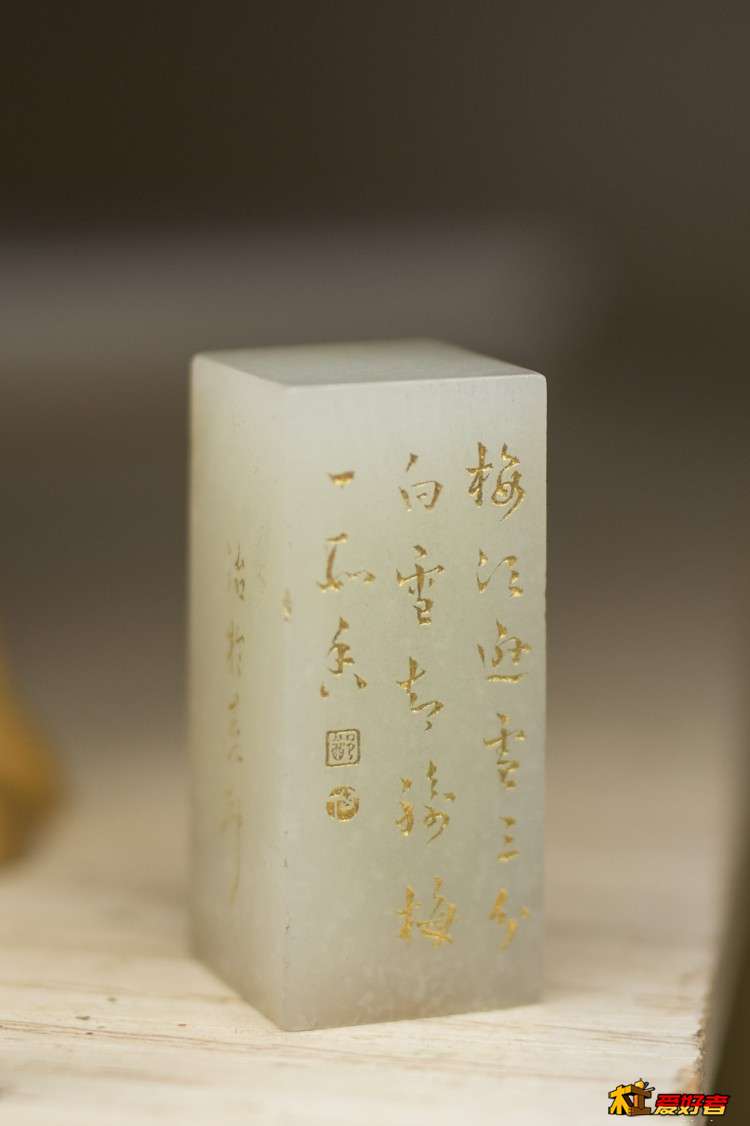 梅須遜雪三分
白雪却輸梅
一段香
木工爱好者